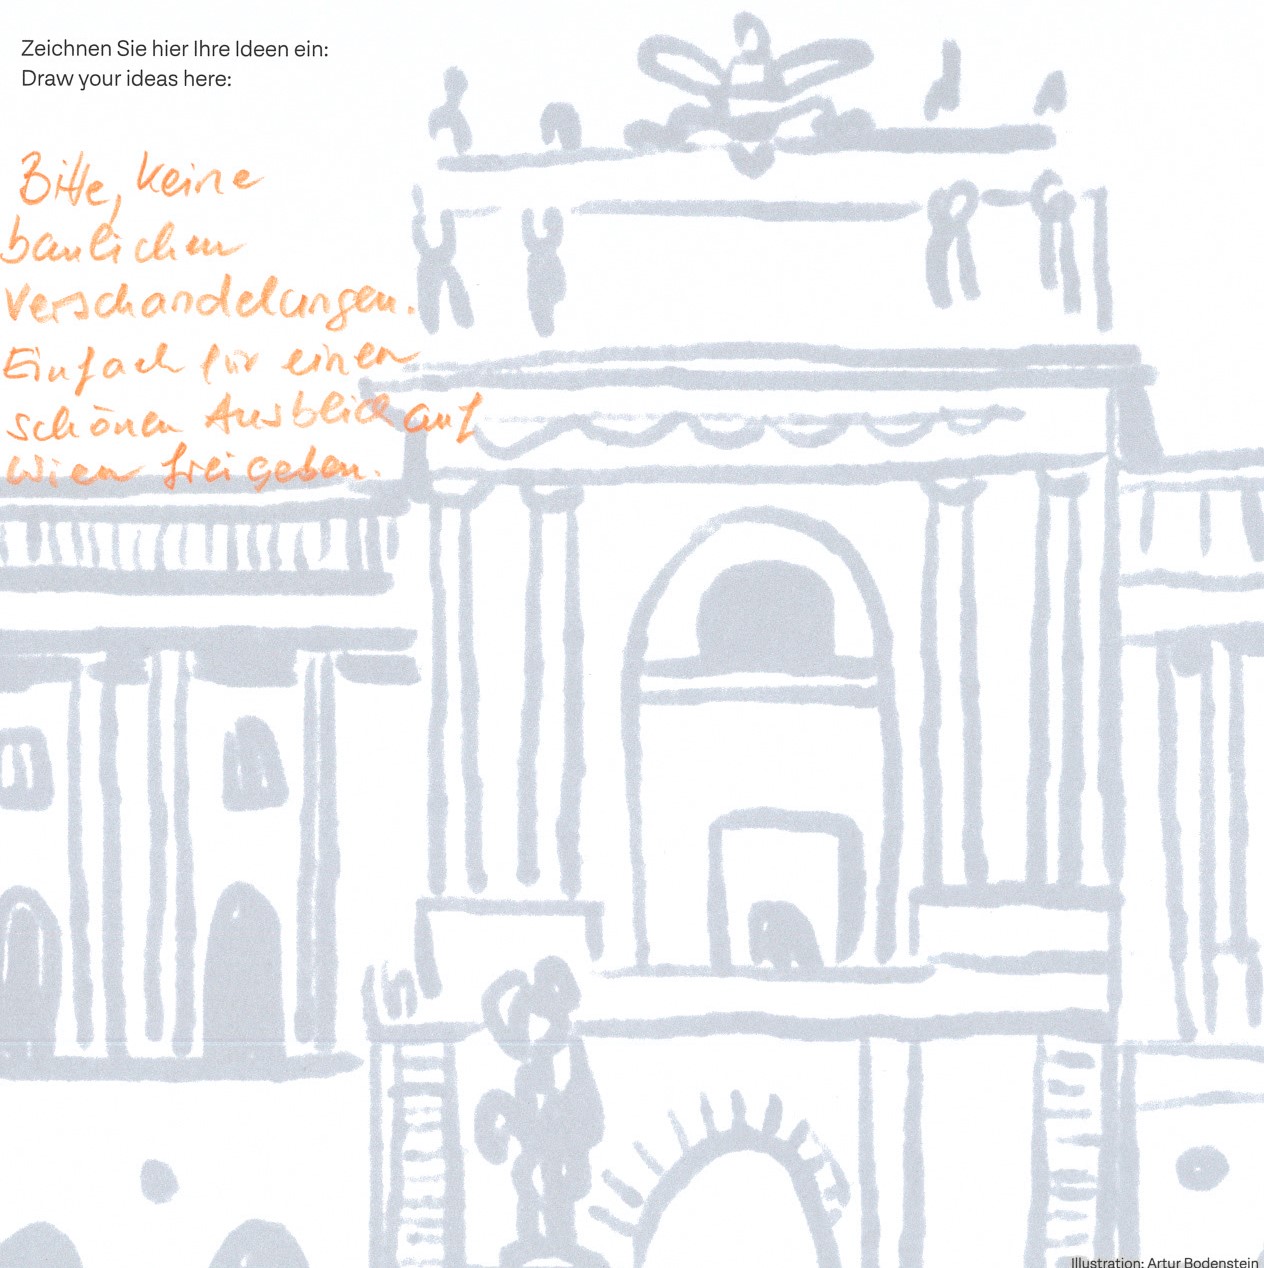 Zeichnen Sie hier Ihre Ideen ein:
Draw your ideas here:
Bitte, keine
baulichen
Verschandelungen.
Einfach für einen
schönen Ausblick auf
Wien frei geben.
Illustration: Artur Bodenstein